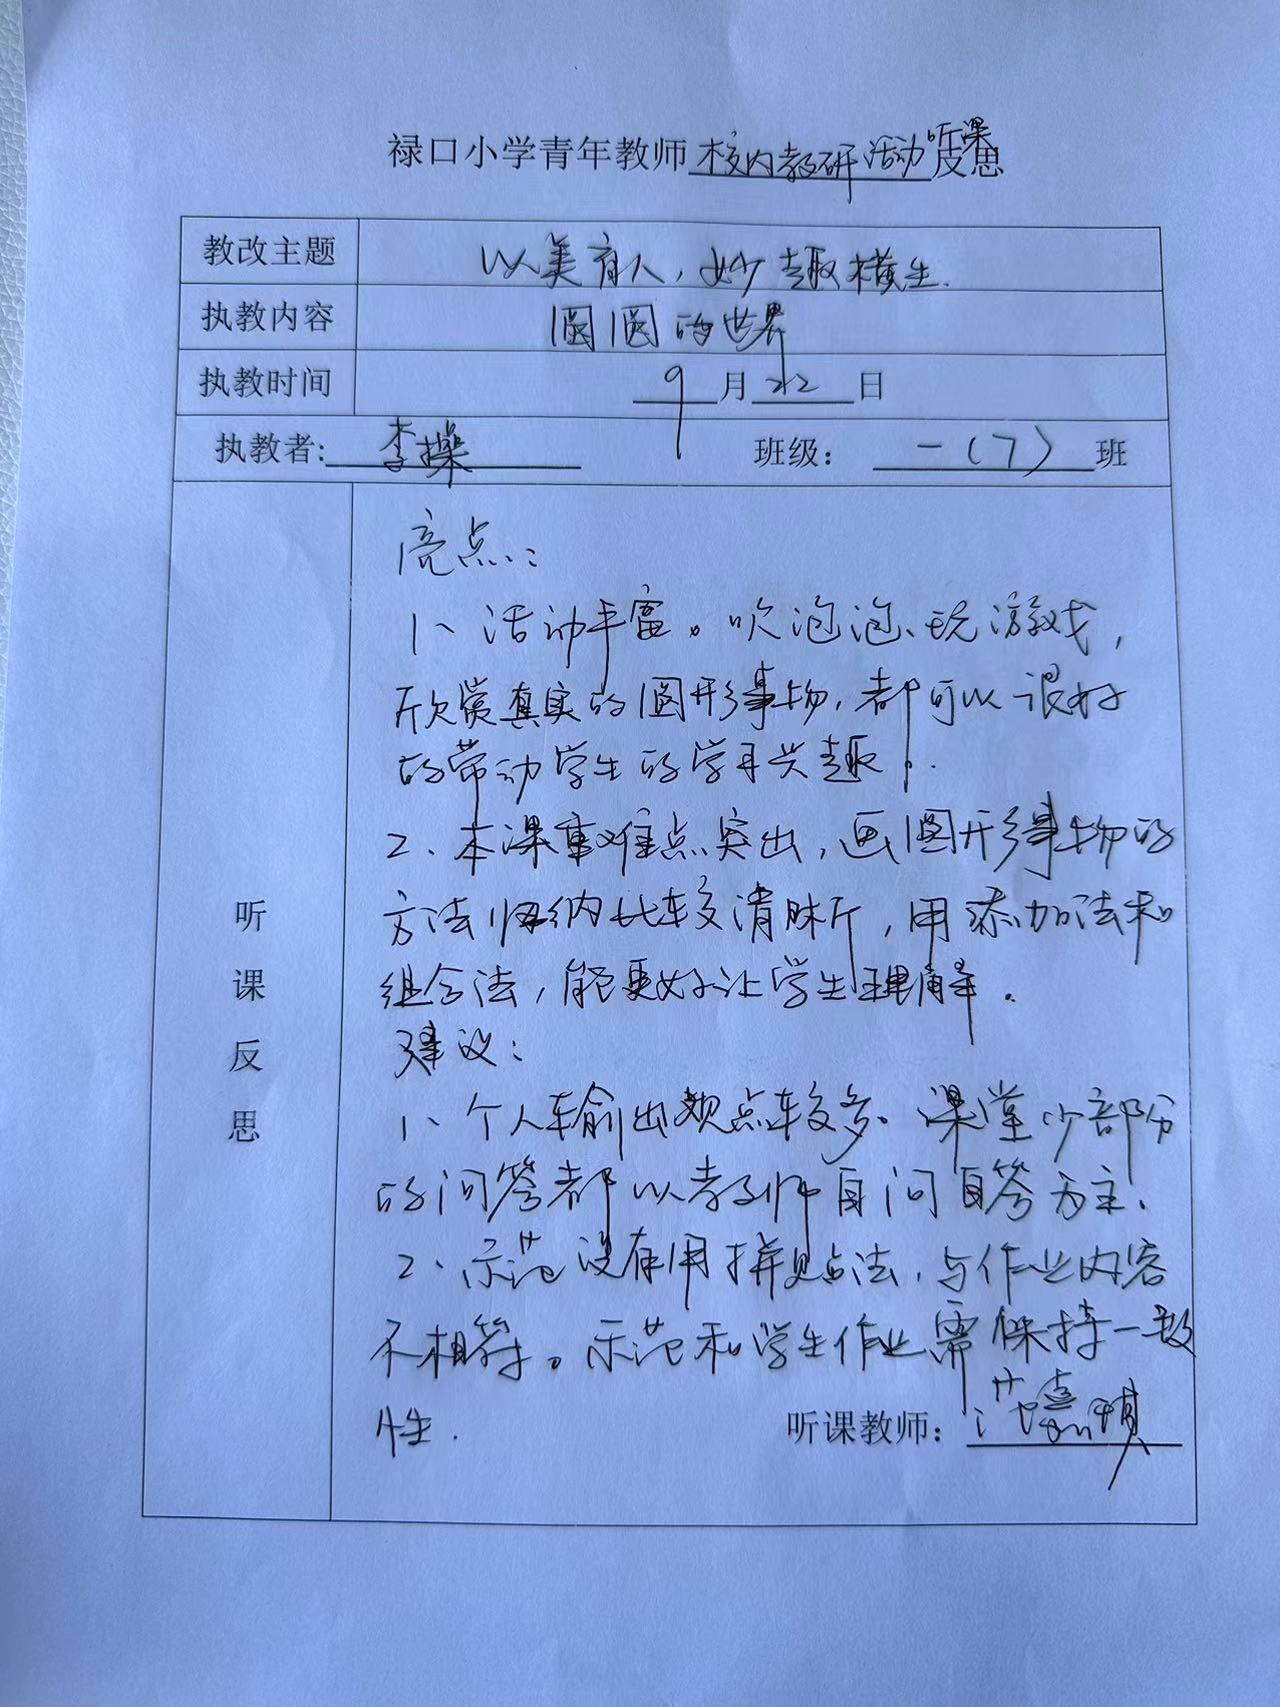 禄口小学青年教师校内教研活动听课反思
教改主题 以美育人，妙趣横生.
执教内容 圆圆的世界
执教时间 9月22日
执教者: 李操 班级： 一(7)班
听课反思
亮点：
1、活动丰富。吹泡泡、玩游戏，
欣赏真实的圆形事物，都可以很好
的带动学生的学习兴趣。
2、本课重难点突出，画圆形事物的
方法归纳比较清晰，用添加法和
组合法，能更好让学生理解。
建议：
1、个人输出观点较多。课堂少部分
的问答都以教师自问自答为主.
2、示范没有用拼贴法，与作业内容
不相符。示范和学生作业需保持一致
性.
听课教师： 范嘉